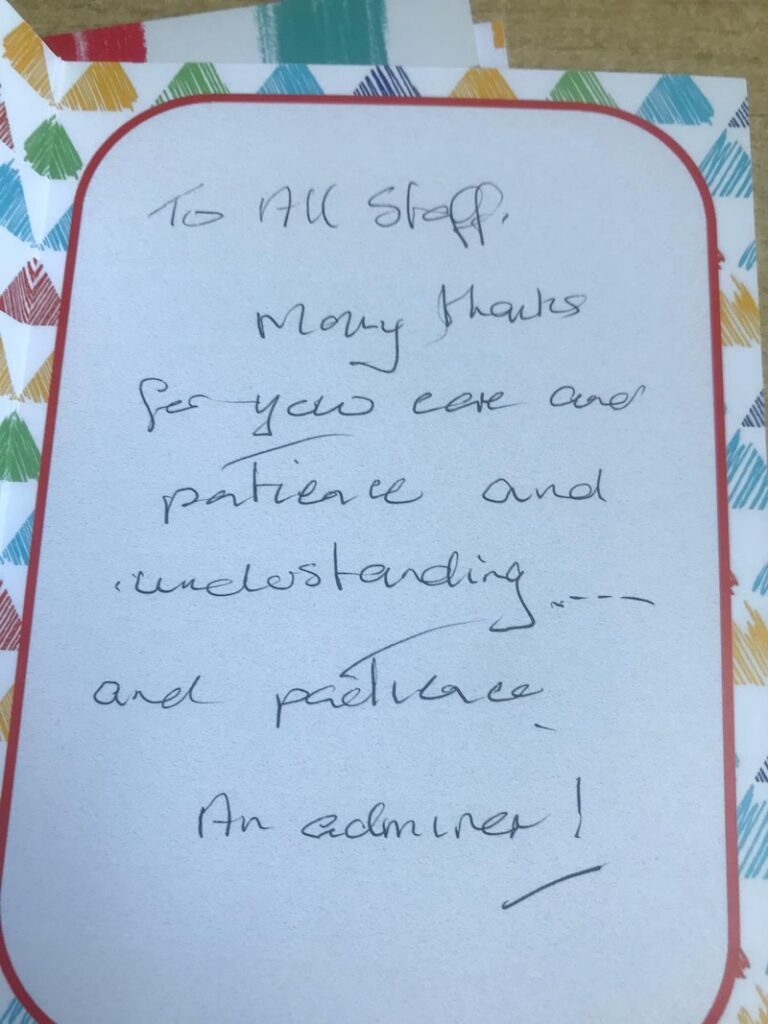 To All Staff.
Many thanks
for your care and
patience and
understanding ....
and patience.
An admirer!